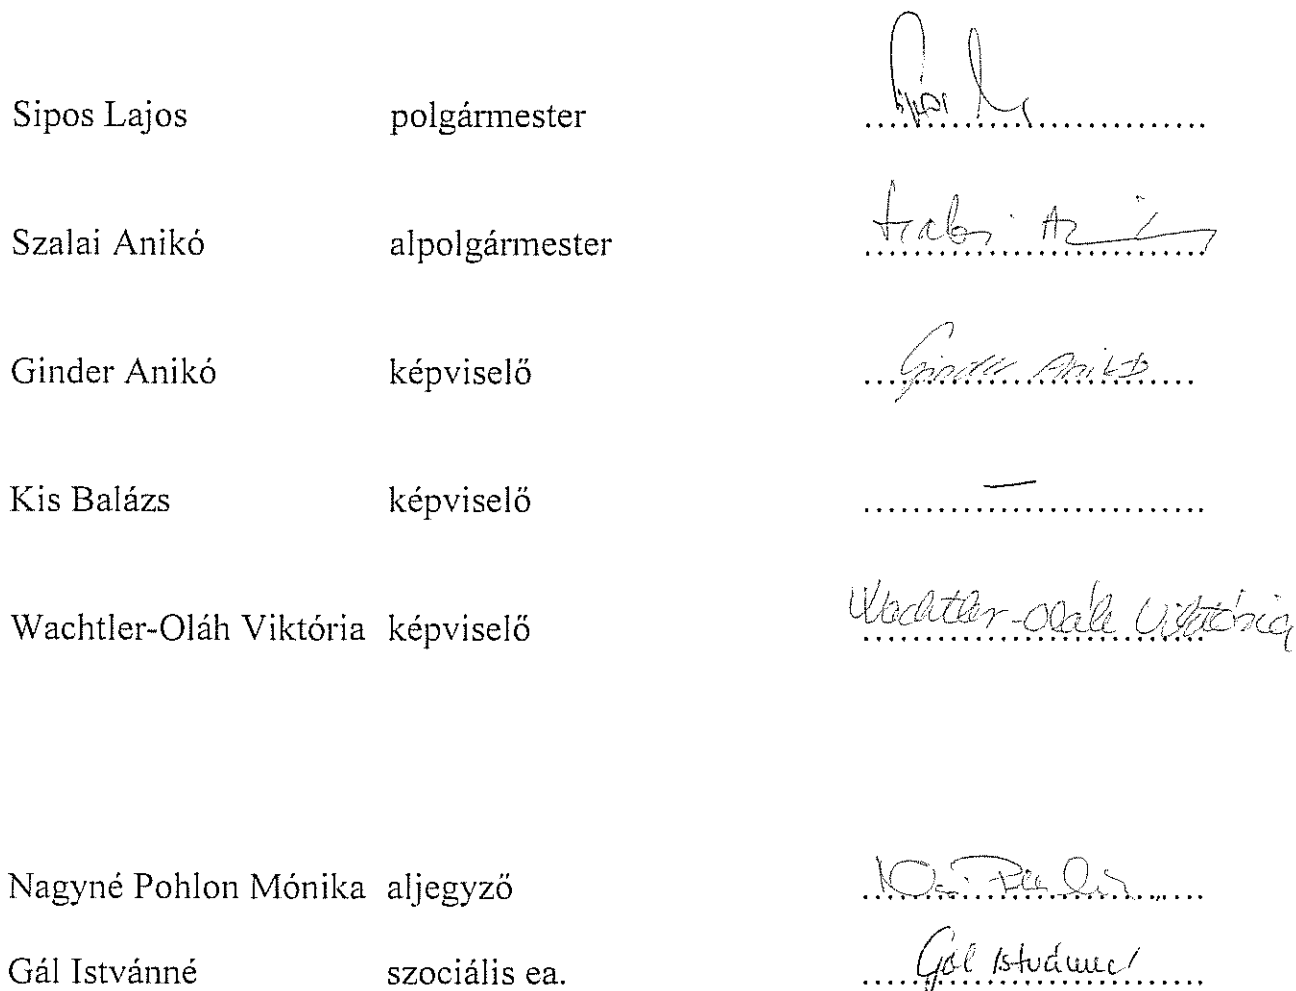 Sipos Lajos polgármester ........................... Sipos L
Szalai Anikó alpolgármester ........................... Szalai A
Ginder Anikó képviselő ........................... Ginder Anikó
Kis Balázs képviselő ........................... —
Wachtler-Oláh Viktória képviselő ........................... Wachtler-Oláh Viktória
Nagyné Pohlon Mónika aljegyző ...........................
Gál Istvánné szociális ea. ........................... Gál Istvánné